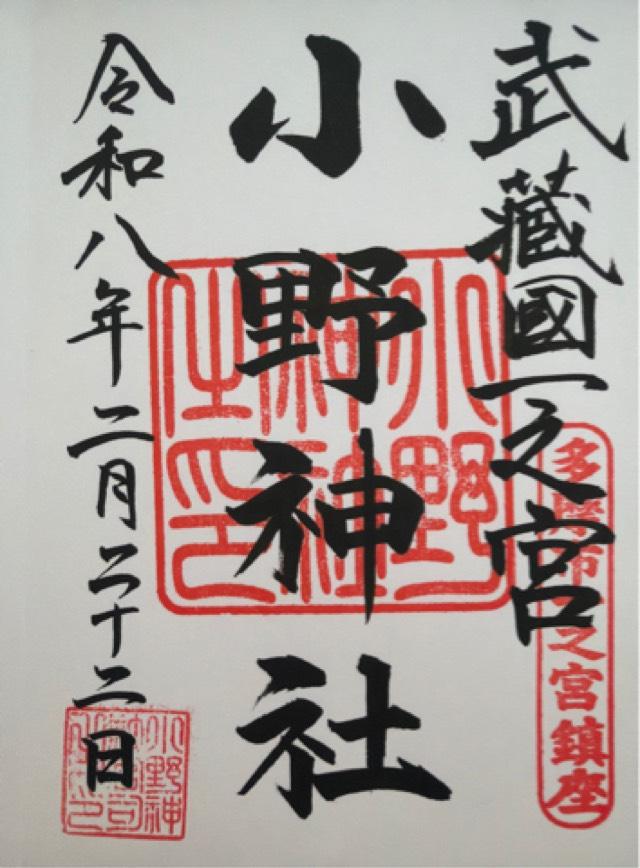 武藏國一之宮
多摩市一之宮鎮座
小野神社
小野神社之印
令和八年二月二十二日